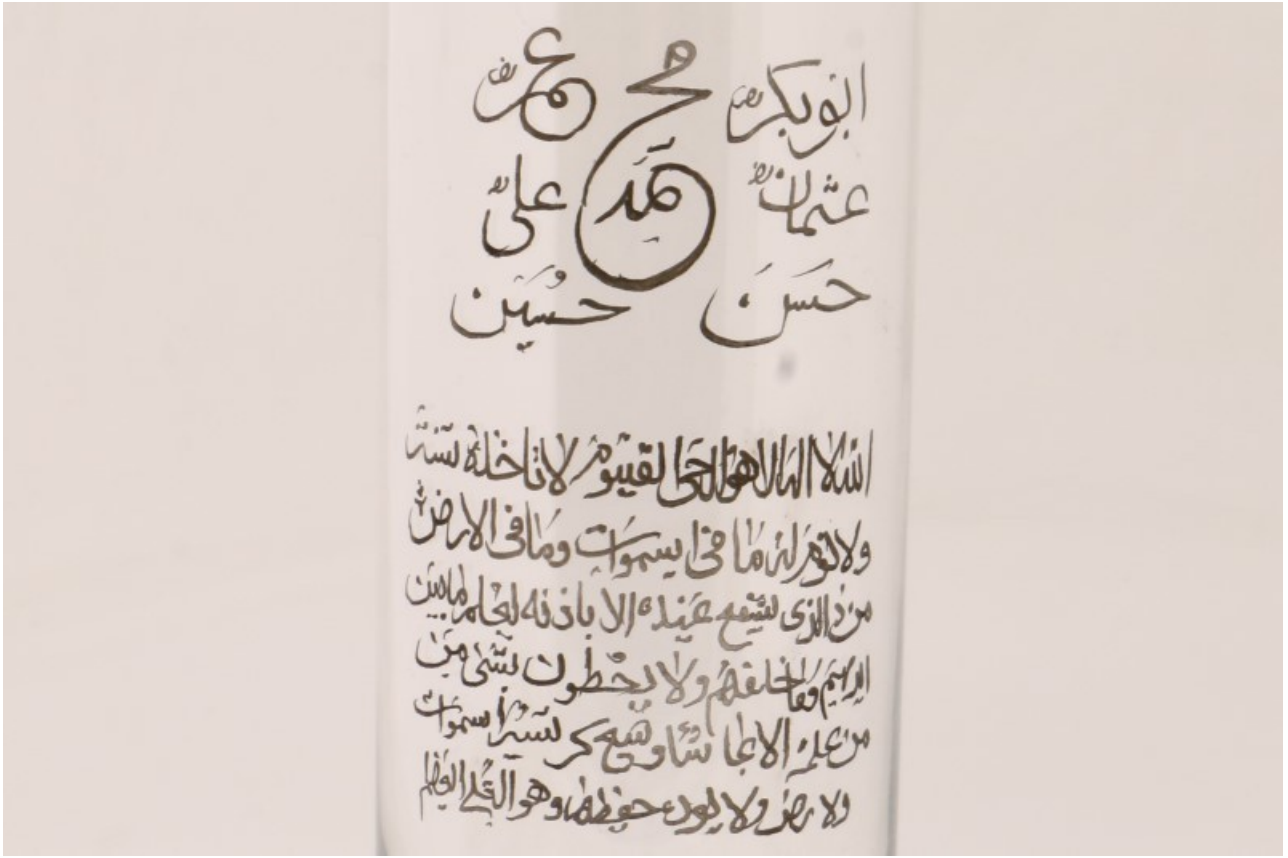 ابوبكر محمد عمر
عثمان على
حَسَن حسُيَن
الله لا اله الا هو الحى لقيوم لا تا خذه سنة
ولا نوم له ما فى اسموات وما فى الارض
من ذالذى يشفع عنده الا باذنه يعلم ما بين
ايديهم وما خلفهم ولا يحطون بشئ من
من علمه الا بما شاء وسع كر سموات
ولا رض ولا يوده حفظهما وهو العلى العظيم